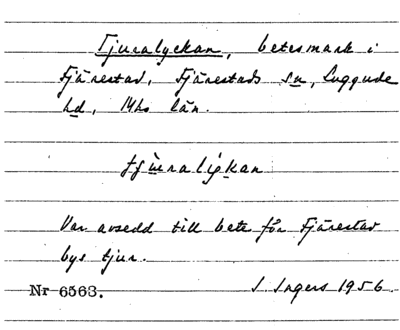 Tjuralyckan, betesmark i
Fjärestad, Fjärestads sn, Luggude
hd, Mhs län.
tjùralỳkan
Var avsedd till bete för Fjärestad
bys tjur.
Nr 6563.
I. Ingers 1956.